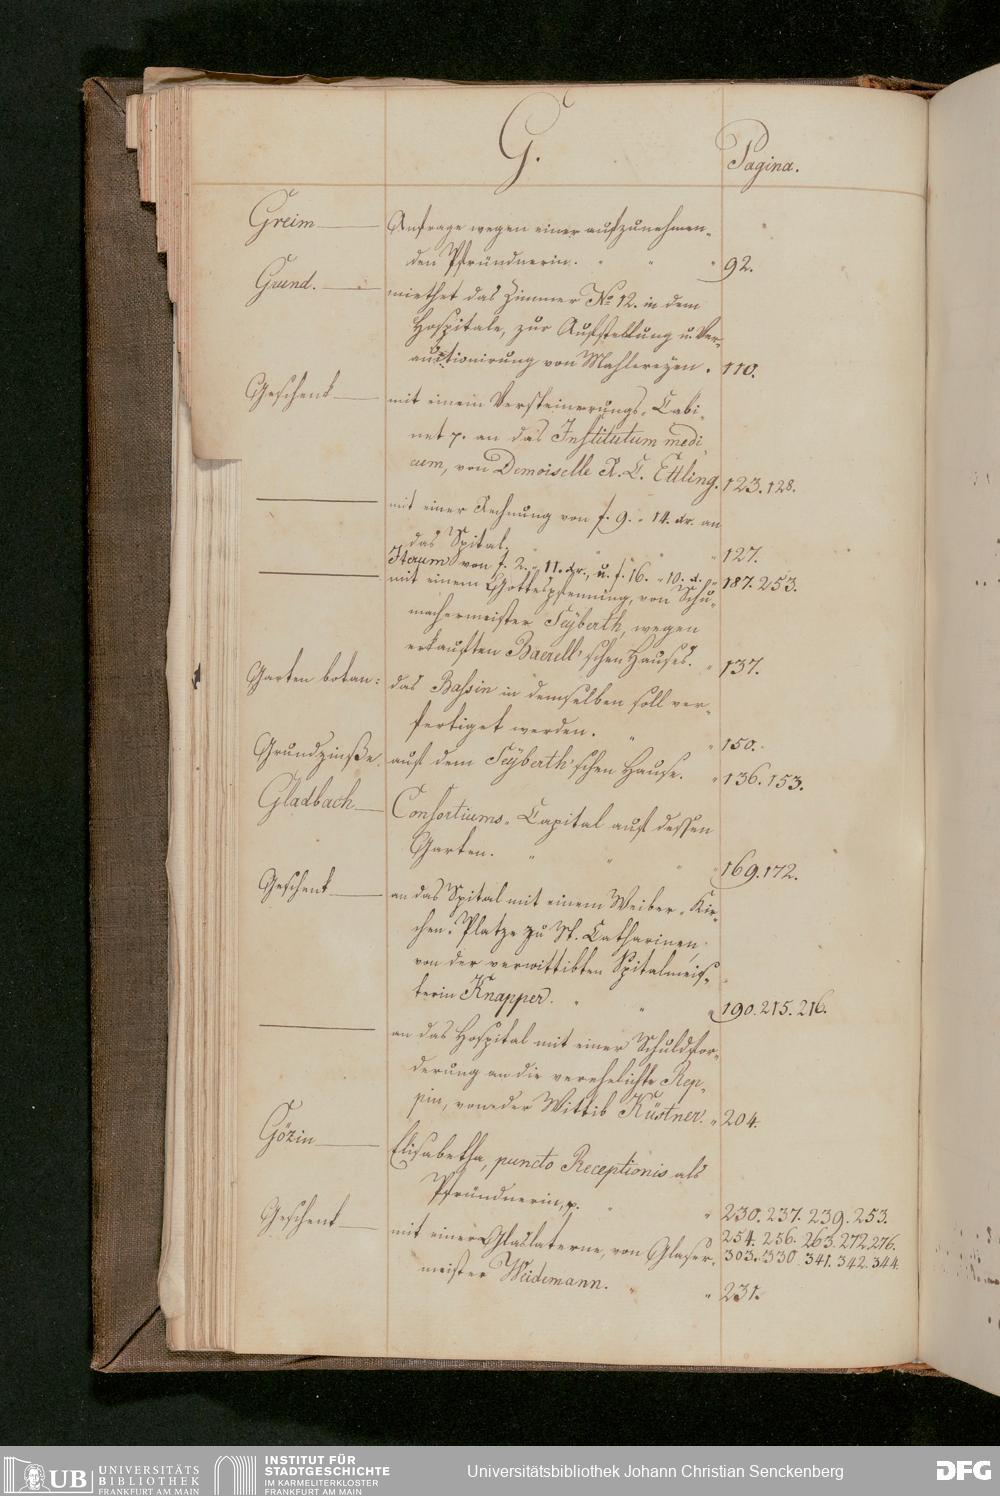 G.
Pagina.
Greim — Anfrage wegen einer aufzunehmen-
den Pfründnerin. " " " 92.
Grund. — miethet das Zimmer No 12. in dem
Hospitale, zur Aufstellung u. Ver-
auctionirung von Mahlereyen. 110.
Geschenk — mit einem Versteinerungs-Cabi-
net p. an das Institutum medi-
cum, von Demoiselle R. C. Ettling. 123. 128.
— mit einer Rechnung von f. 9. " 14. xr. an
das Spital. " " " 127.
Iterum von f. 2. " 11. xr., u. f. 16. " 10. d. " 187. 253.
— mit einem Gottespfenning, von Schu-
machermeister Seyberth, wegen
erkauften Baerell'schen Hauses. " 137.
Garten botan: das Bassin in demselben soll ver-
fertiget werden. " " 150.
Grundzinße. auf dem Seyberth'schen Hause. " 136. 153.
Gladbach — Consortiums-Capital auf dessen
Garten. " " " 169. 172.
Geschenk — an das Spital mit einem Weiber-Kir-
chen-Platze zu St. Catharinen,
von der verwittibten Spitalmeis-
terin Knapper. " " " 190. 215. 216.
— an das Hospital mit einer Schuldfor-
derung an die verehelichte Rep-
pin, von der Wittib Küstner. " 204.
Gözin — Elisabetha, puncto Receptionis als
Pfründnerin, p. " " 230. 237. 239. 253.
254. 256. 263. 272. 276.
303. 330. 341. 342. 344.
Geschenk — mit einer Glaslaterne, von Glaser-
meister Weidemann. " " 231.
UB UNIVERSITÄTS
BIBLIOTHEK
FRANKFURT AM MAIN
INSTITUT FÜR
STADTGESCHICHTE
IM KARMELITERKLOSTER
FRANKFURT AM MAIN
Universitätsbibliothek Johann Christian Senckenberg
DFG